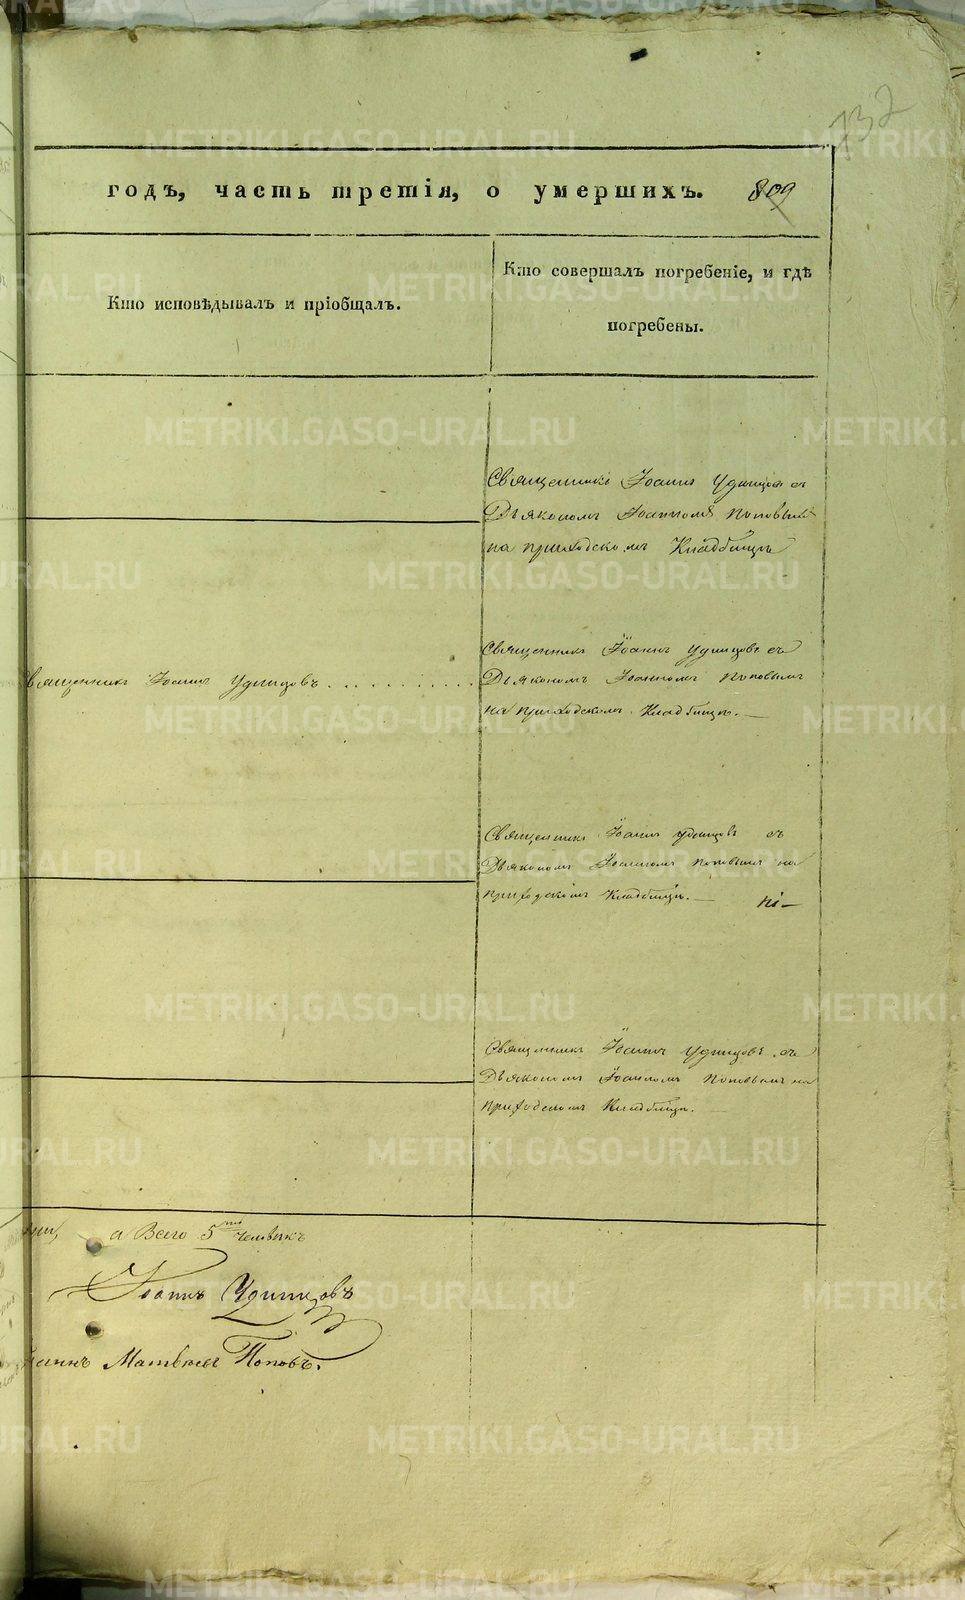 132
годъ, часть третія, о умершихъ. 809
Кто исповѣдывалъ и пріобщалъ.
Кто совершалъ погребеніе, и гдѣ
погребены.
Священникъ Іоаннъ Удинцовъ съ
Діякономъ Іоанномъ Поповымъ
на приходскомъ Кладбищѣ
Священникъ Іоаннъ Удинцовъ . . . . . . . . . .
Священникъ Іоаннъ Удинцовъ съ
Діякономъ Іоанномъ Поповымъ
на приходскомъ Кладбищѣ. —
Священникъ Іоаннъ Удинцовъ съ
Діякономъ Іоанномъ Поповымъ на
приходскомъ Кладбищѣ. —
Священникъ Іоаннъ Удинцовъ съ
Діякономъ Іоанномъ Поповымъ на
приходскомъ Кладбищѣ. —
а Всего 5ть человѣкъ
Іоаннъ Удинцовъ
Матвѣевъ Поповъ.
METRIKI.GASO-URAL.RU